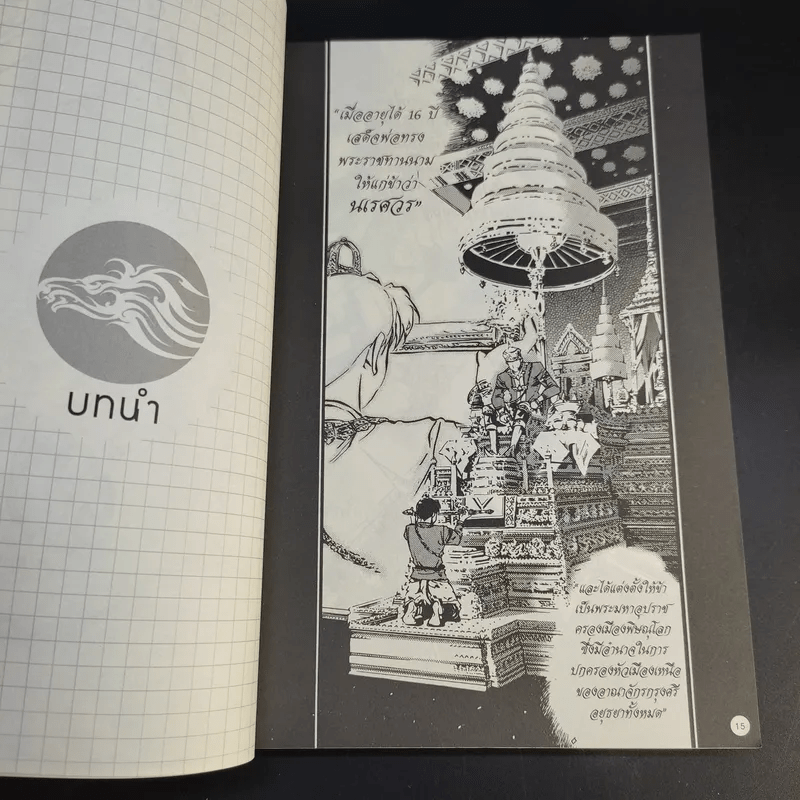 บทนำ
"เมื่ออายุได้ 16 ปี
เสด็จพ่อทรง
พระราชทานนาม
ให้แก่ข้าว่า
นเรศวร"
"และได้แต่งตั้งให้ข้า
เป็นพระมหาอุปราช
ครองเมืองพิษณุโลก
ซึ่งมีอำนาจในการ
ปกครองหัวเมืองเหนือ
ของอาณาจักรกรุงศรี
อยุธยาทั้งหมด"
15